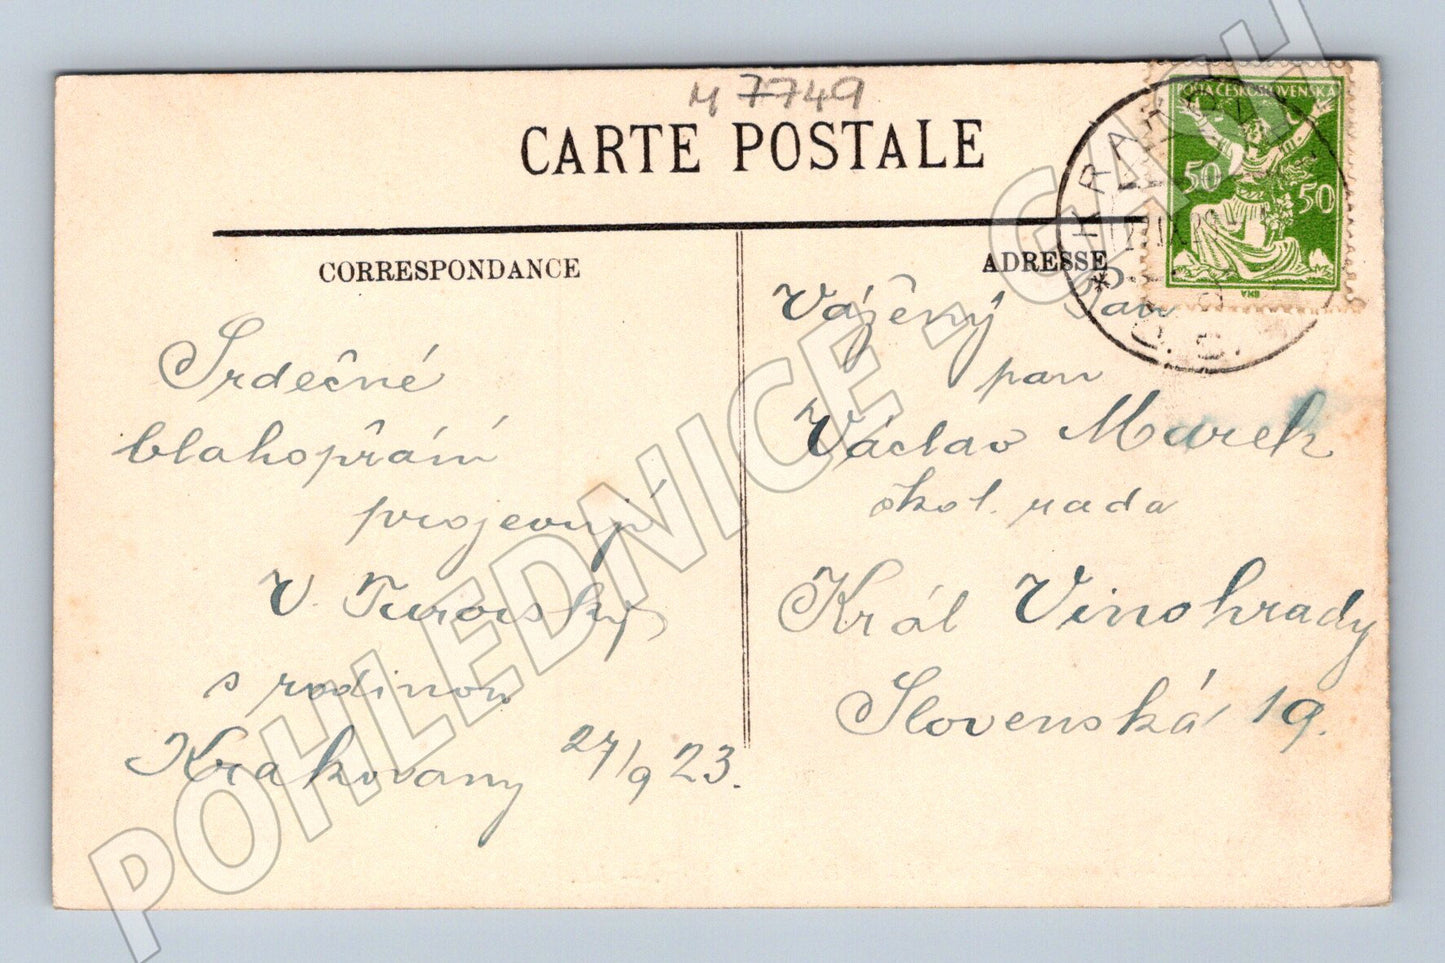 M 7749
CARTE POSTALE
POŠTA ČESKOSLOVENSKÁ
50 50
VHB
CORRESPONDANCE
ADRESSE
Srdečné
blahopřání
projevují
V. Turovský
s rodinou
Krakovany 27/9 23.
Vážený Pan
pan
Václav Marek
škol. rada
Král Vinohrady
Slovenská 19.
POHLEDNICE - GACH